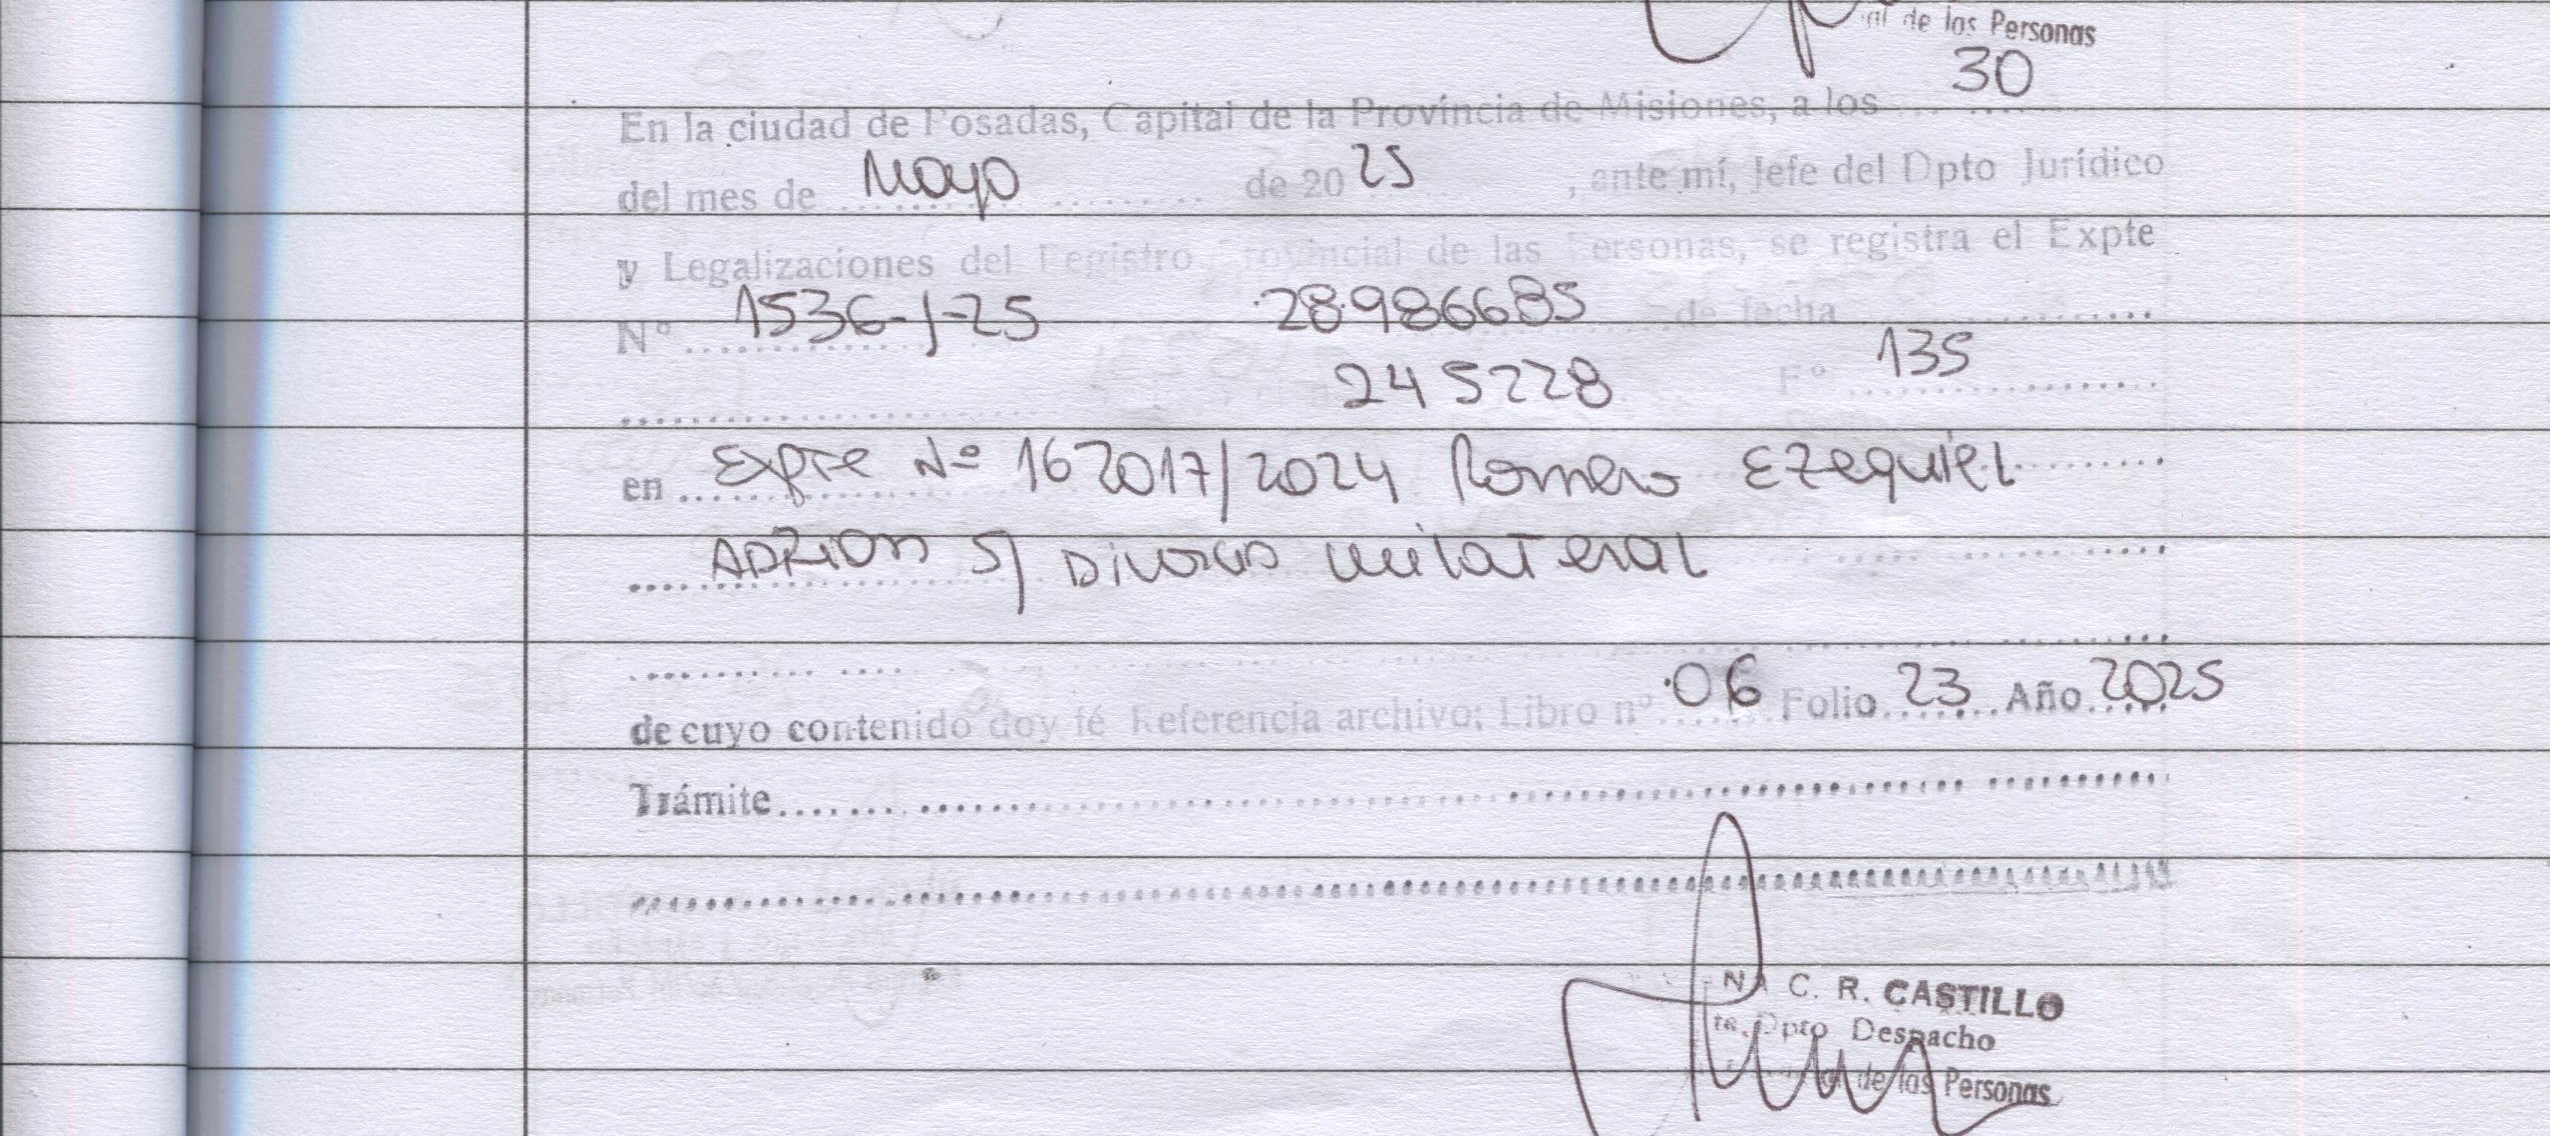 al de las Personas
30
En la ciudad de Posadas, Capital de la Província de Misiones, a los ... ...
del mes de Mayo de 20 25, ante mí, Jefe del Dpto Jurídico
y Legalizaciones del Registro Provincial de las Personas, se registra el Expte
Nº 1536-J-25 28986685 de fecha
245228 Fº 135
en Expte Nº 162017/2024 Romero Ezequiel
ADRIAN S/ Divorcio unilateral
de cuyo contenido doy fé Referencia archivo: Libro nº 06 Folio 23 Año 2025
Trámite
NA C. R. CASTILLO
te. Dpto Despacho
al de las Personas